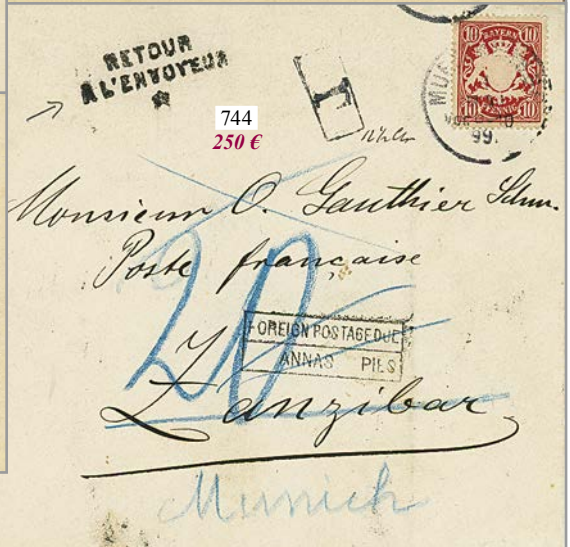 RETOUR
A L'ENVOYEUR
T
10 BAYERN 10
10 PFENNIG 10
99.
744
250 €
Monsieur O. Gauthier
Poste française
20
FOREIGN POSTAGE DUE
ANNAS PIES
Zanzibar
Munich